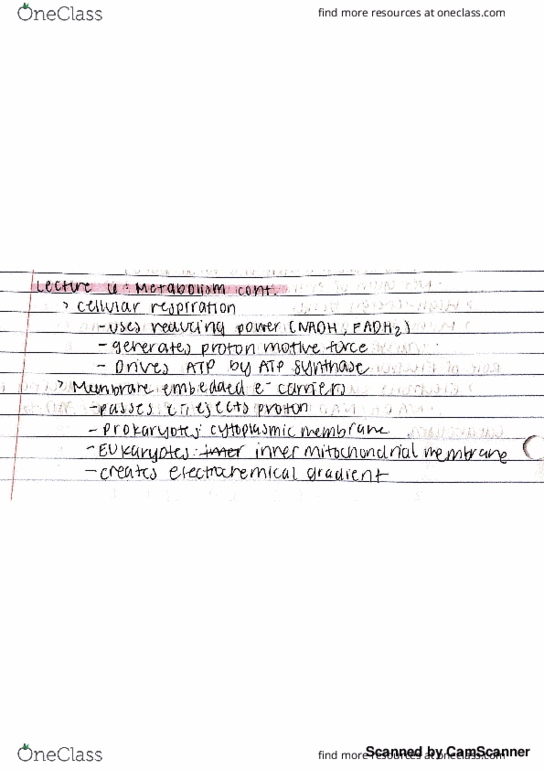 OneClass
find more resources at oneclass.com
Lecture 4: Metabolism cont.
> cellular respiration
-uses reducing power (NADH, FADH2)
-generates proton motive force
- Drives ATP by ATP synthase
> Membrane embedded e- carriers
-passes e-, ejects proton
-prokaryotes: cytoplasmic membrane
-EUkaryotes: inner inner mitochondrial membrane
-creates electrochemical gradient
OneClass
find more resources at oneclass.com
Scanned by CamScanner